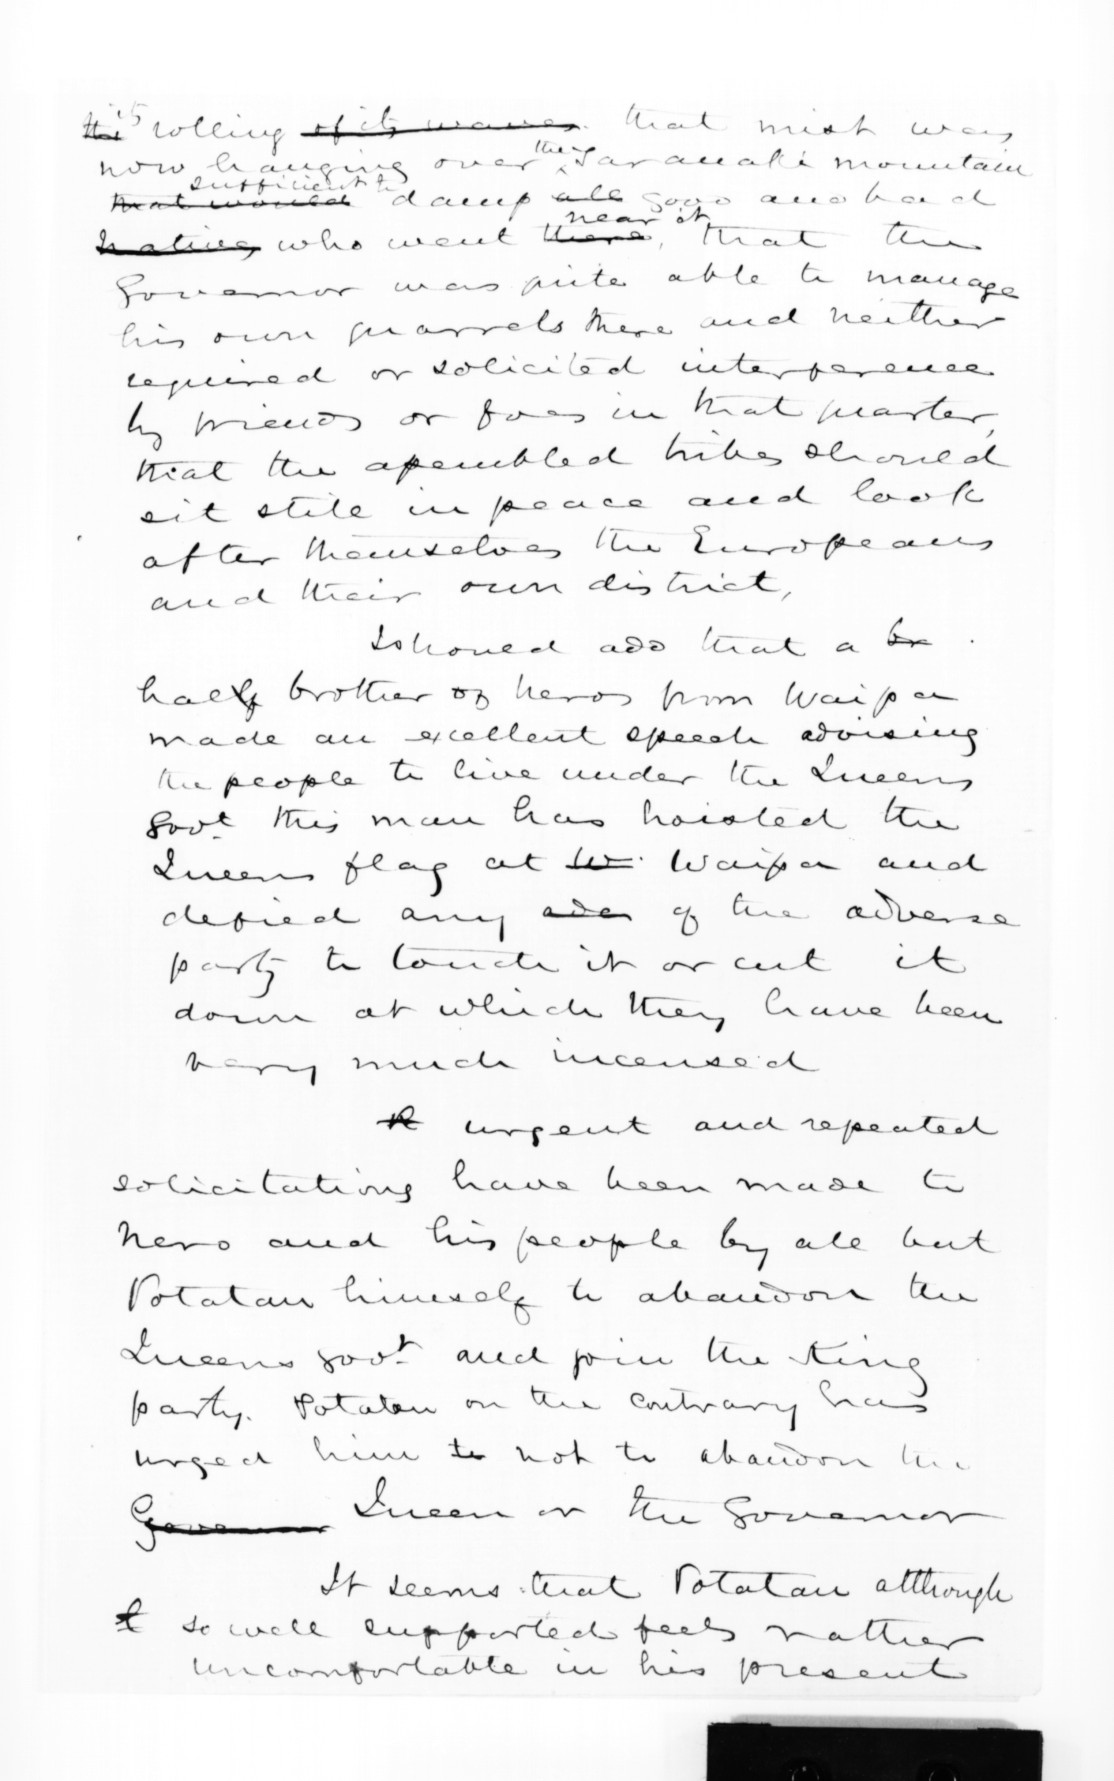 its rolling of its waves. that mist was
now hanging over the Taranaki mountain
that would sufficient to damp all good and bad
natives who went there near it, that the
Governor was quite able to manage
his own quarrels there and neither
required or solicited interference
by friends or foes in that quarter,
that the assembled tribes should
sit still in peace and look
after themselves the Europeans
and their own district,
I should add that a br
half brother of Neros from Waipa
made an excellent speech advising
the people to live under the Queens
Govt. this man has hoisted the
Queens flag at W. Waipa and
defied any adv of the adverse
party to touch it or cut it
down at which they have been
very much incensed
R urgent and repeated
solicitations have been made to
Nero and his people by all but
Potatau himself to abandon the
Queens Govt. and join the King
party. Potatau on the contrary has
urged him to not to abandon the
Governor Queen or the Governor
It seems that Potatau although
so well supported feels rather
uncomfortable in his present